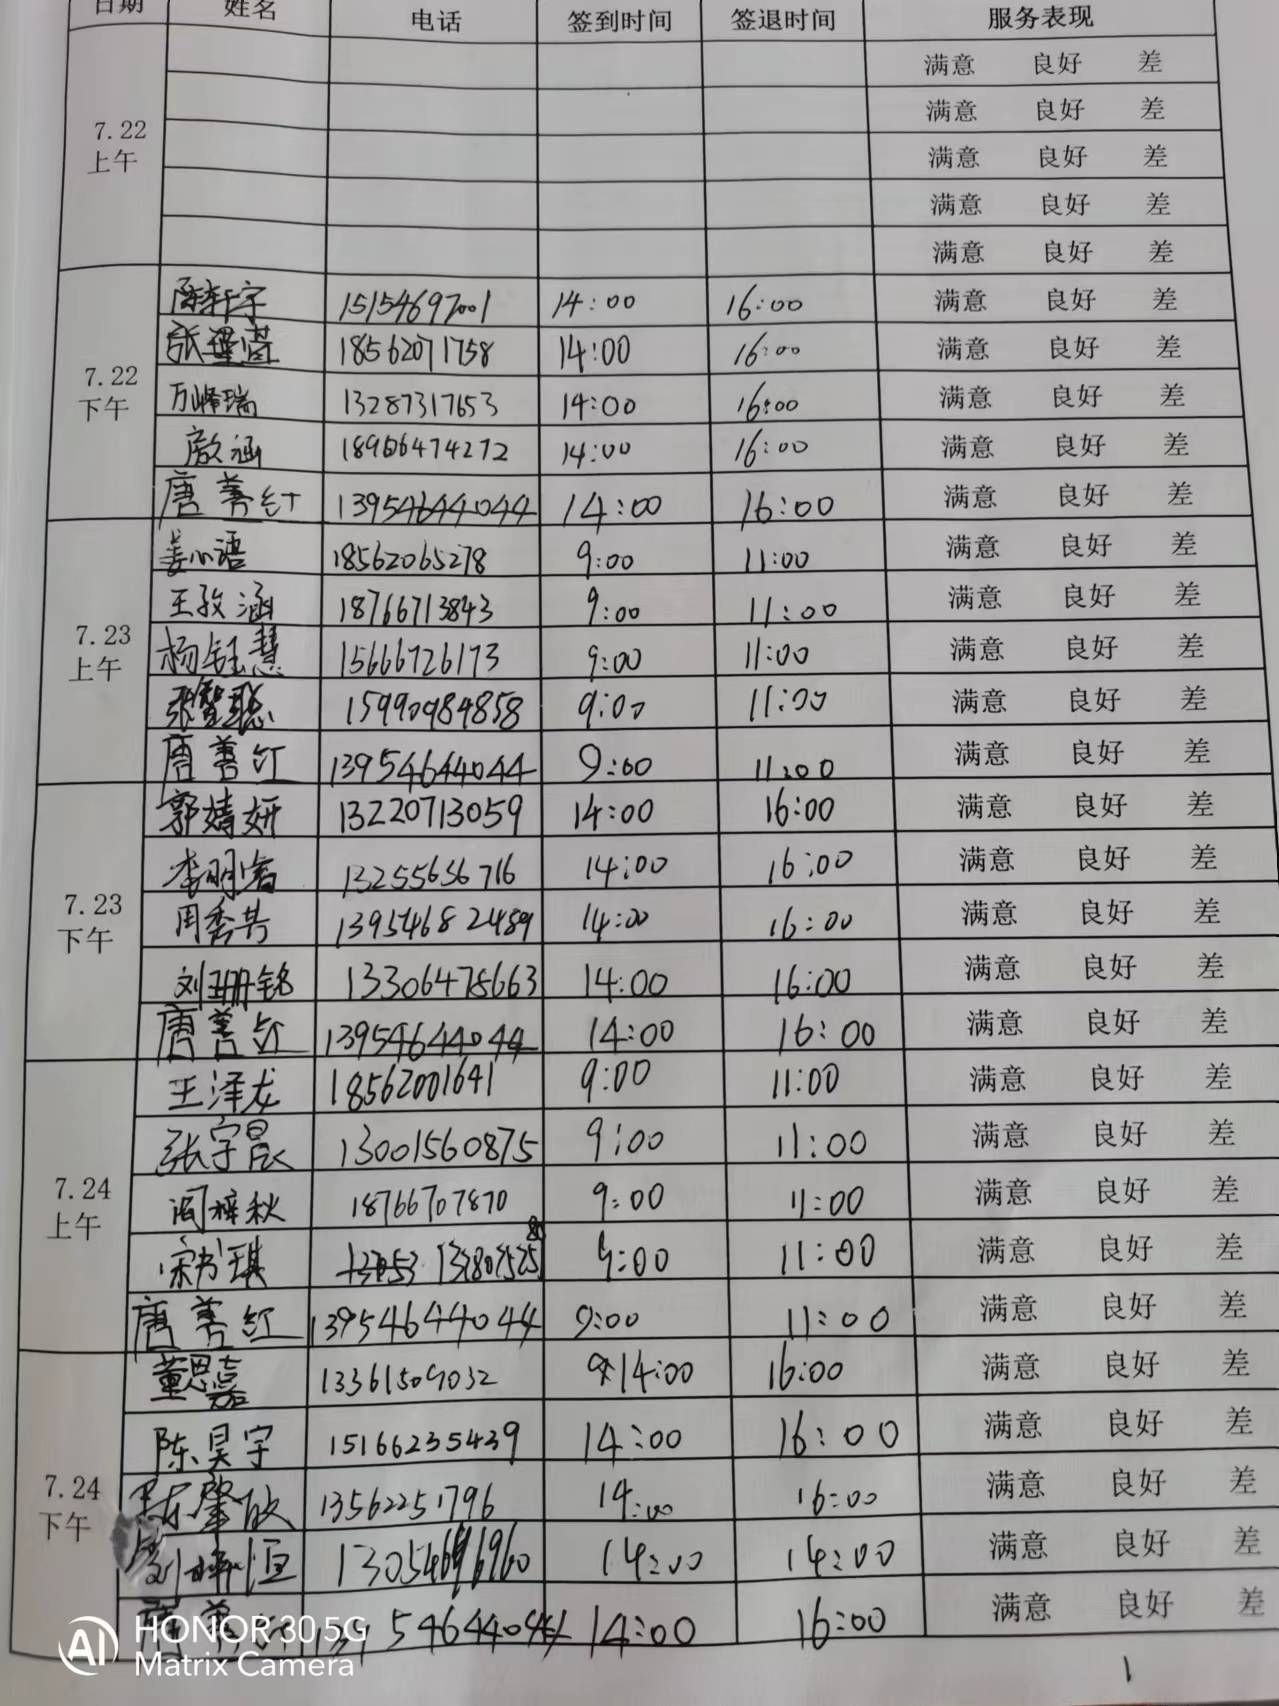 日期 姓名 电话 签到时间 签退时间 服务表现
7.22 上午
满意 良好 差
满意 良好 差
满意 良好 差
满意 良好 差
满意 良好 差
7.22 下午
陈轩宇 15154697001 14:00 16:00 满意 良好 差
张 18562071758 14:00 16:00 满意 良好 差
万峰瑞 13287317653 14:00 16:00 满意 良好 差
涵 14:00 16:00 满意 良好 差
唐善红 13954644044 14:00 16:00 满意 良好 差
7.23 上午
姜心语 18562065278 9:00 11:00 满意 良好 差
王孜涵 18766713843 9:00 11:00 满意 良好 差
杨钰慧 15666726173 9:00 11:00 满意 良好 差
张智聪 15990984858 9:00 11:00 满意 良好 差
唐善红 13954644044 9:00 11:00 满意 良好 差
7.23 下午
郭婧妍 13220713059 14:00 16:00 满意 良好 差
李明 13255636716 14:00 16:00 满意 良好 差
周秀芳 13954682489 14:00 16:00 满意 良好 差
刘珊铭 13306475663 14:00 16:00 满意 良好 差
唐善红 13954644044 14:00 16:00 满意 良好 差
7.24 上午
王泽龙 18562001641 9:00 11:00 满意 良好 差
张宇晨 13001560875 9:00 11:00 满意 良好 差
闫梓秋 18766707870 9:00 11:00 满意 良好 差
宋书琪 9:00 11:00 满意 良好 差
唐善红 13954644044 9:00 11:00 满意 良好 差
7.24 下午
董思嘉 13361509032 14:00 16:00 满意 良好 差
陈昊宇 15166235439 14:00 16:00 满意 良好 差
陈肇欣 13562251796 14:00 16:00 满意 良好 差
刘 恒 14:00 14:00 满意 良好 差
唐善 54644044 14:00 16:00 满意 良好 差
AI HONOR 30 5G
Matrix Camera
1